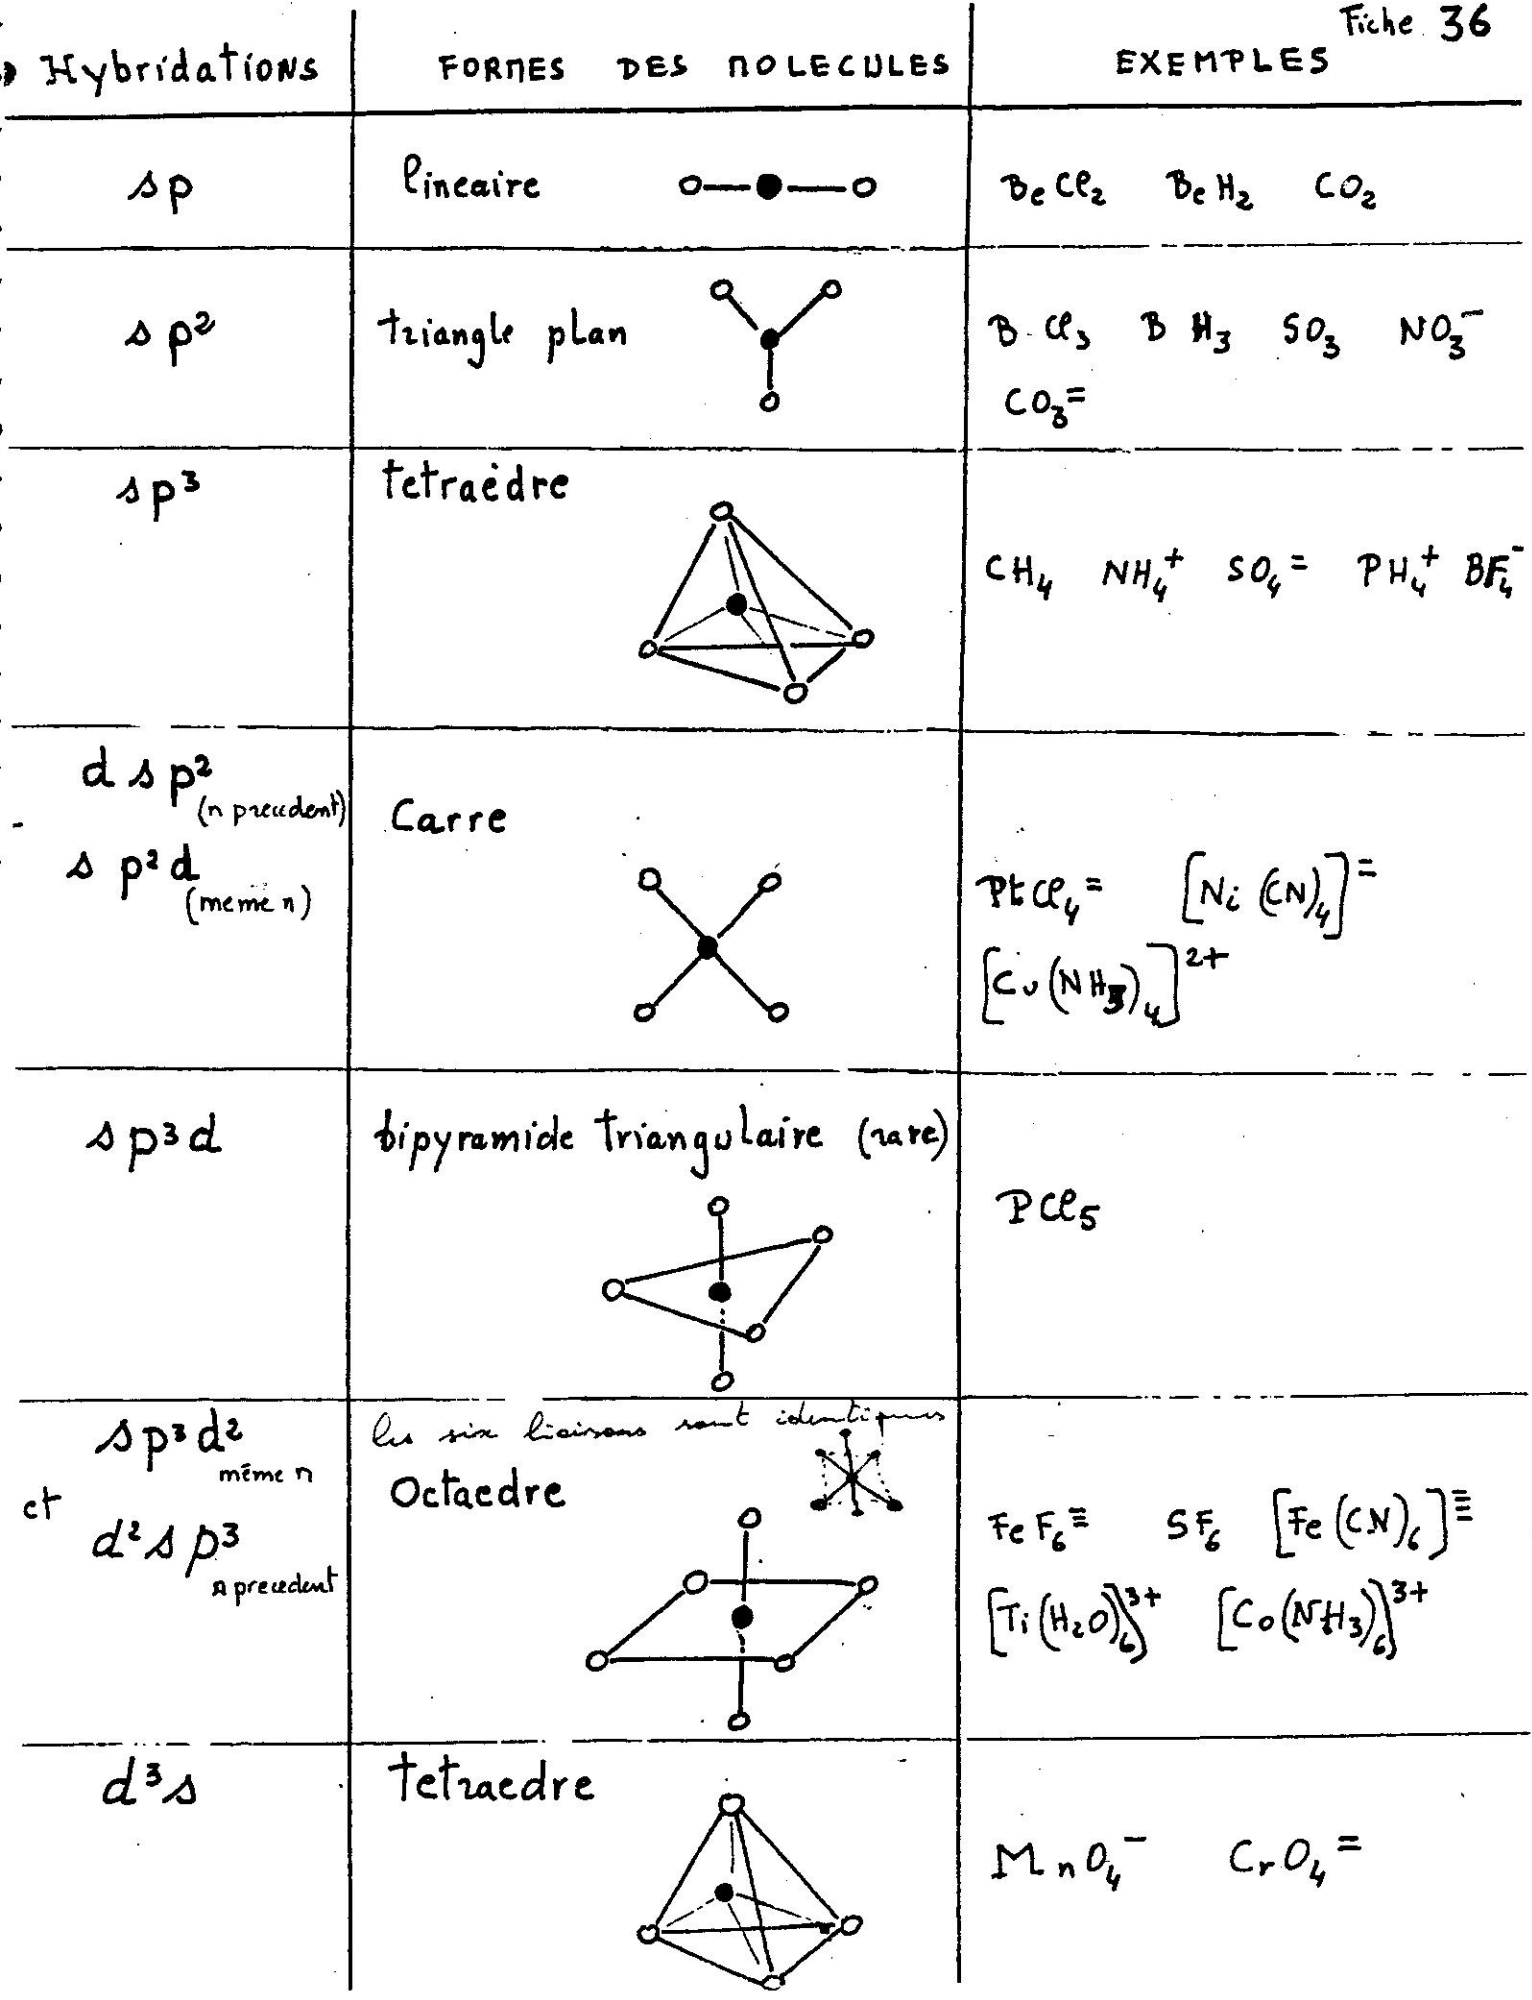 Fiche 36
Hybridations FORMES DES MOLECULES EXEMPLES
sp lineaire BeCl₂ BeH₂ CO₂
sp² triangle plan BCl₃ BH₃ SO₃ NO₃⁻
CO₃⁼
sp³ tetraèdre
CH₄ NH₄⁺ SO₄⁼ PH₄⁺ BF₄⁻
dsp² (n precedent) Carre
sp²d (meme n)
PtCl₄⁼ [Ni(CN)₄]⁼
[Cu(NH₃)₄]²⁺
sp³d bipyramide triangulaire (rare)
PCl₅
sp³d² même n
les six liaisons sont identiques
et Octaedre
d²sp³ n precedent
FeF₆≡ SF₆ [Fe(CN)₆]≣
[Ti(H₂O)₆]³⁺ [Co(NH₃)₆]³⁺
d³s tetraedre
MnO₄⁻ CrO₄⁼